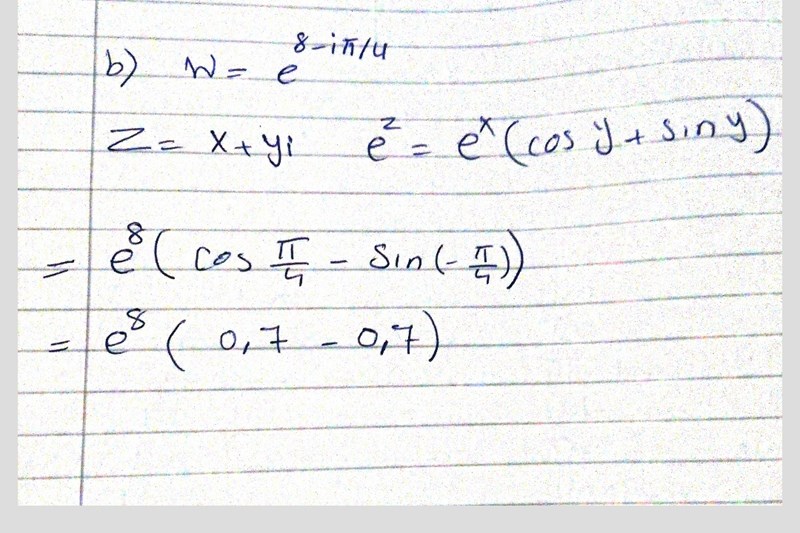 b) W = e^{8-iπ/4}
Z = x+yi e^z = e^x (cos y + sin y)
= e^8 ( cos π/4 - sin (- π/4))
= e^8 ( 0,7 - 0,7)